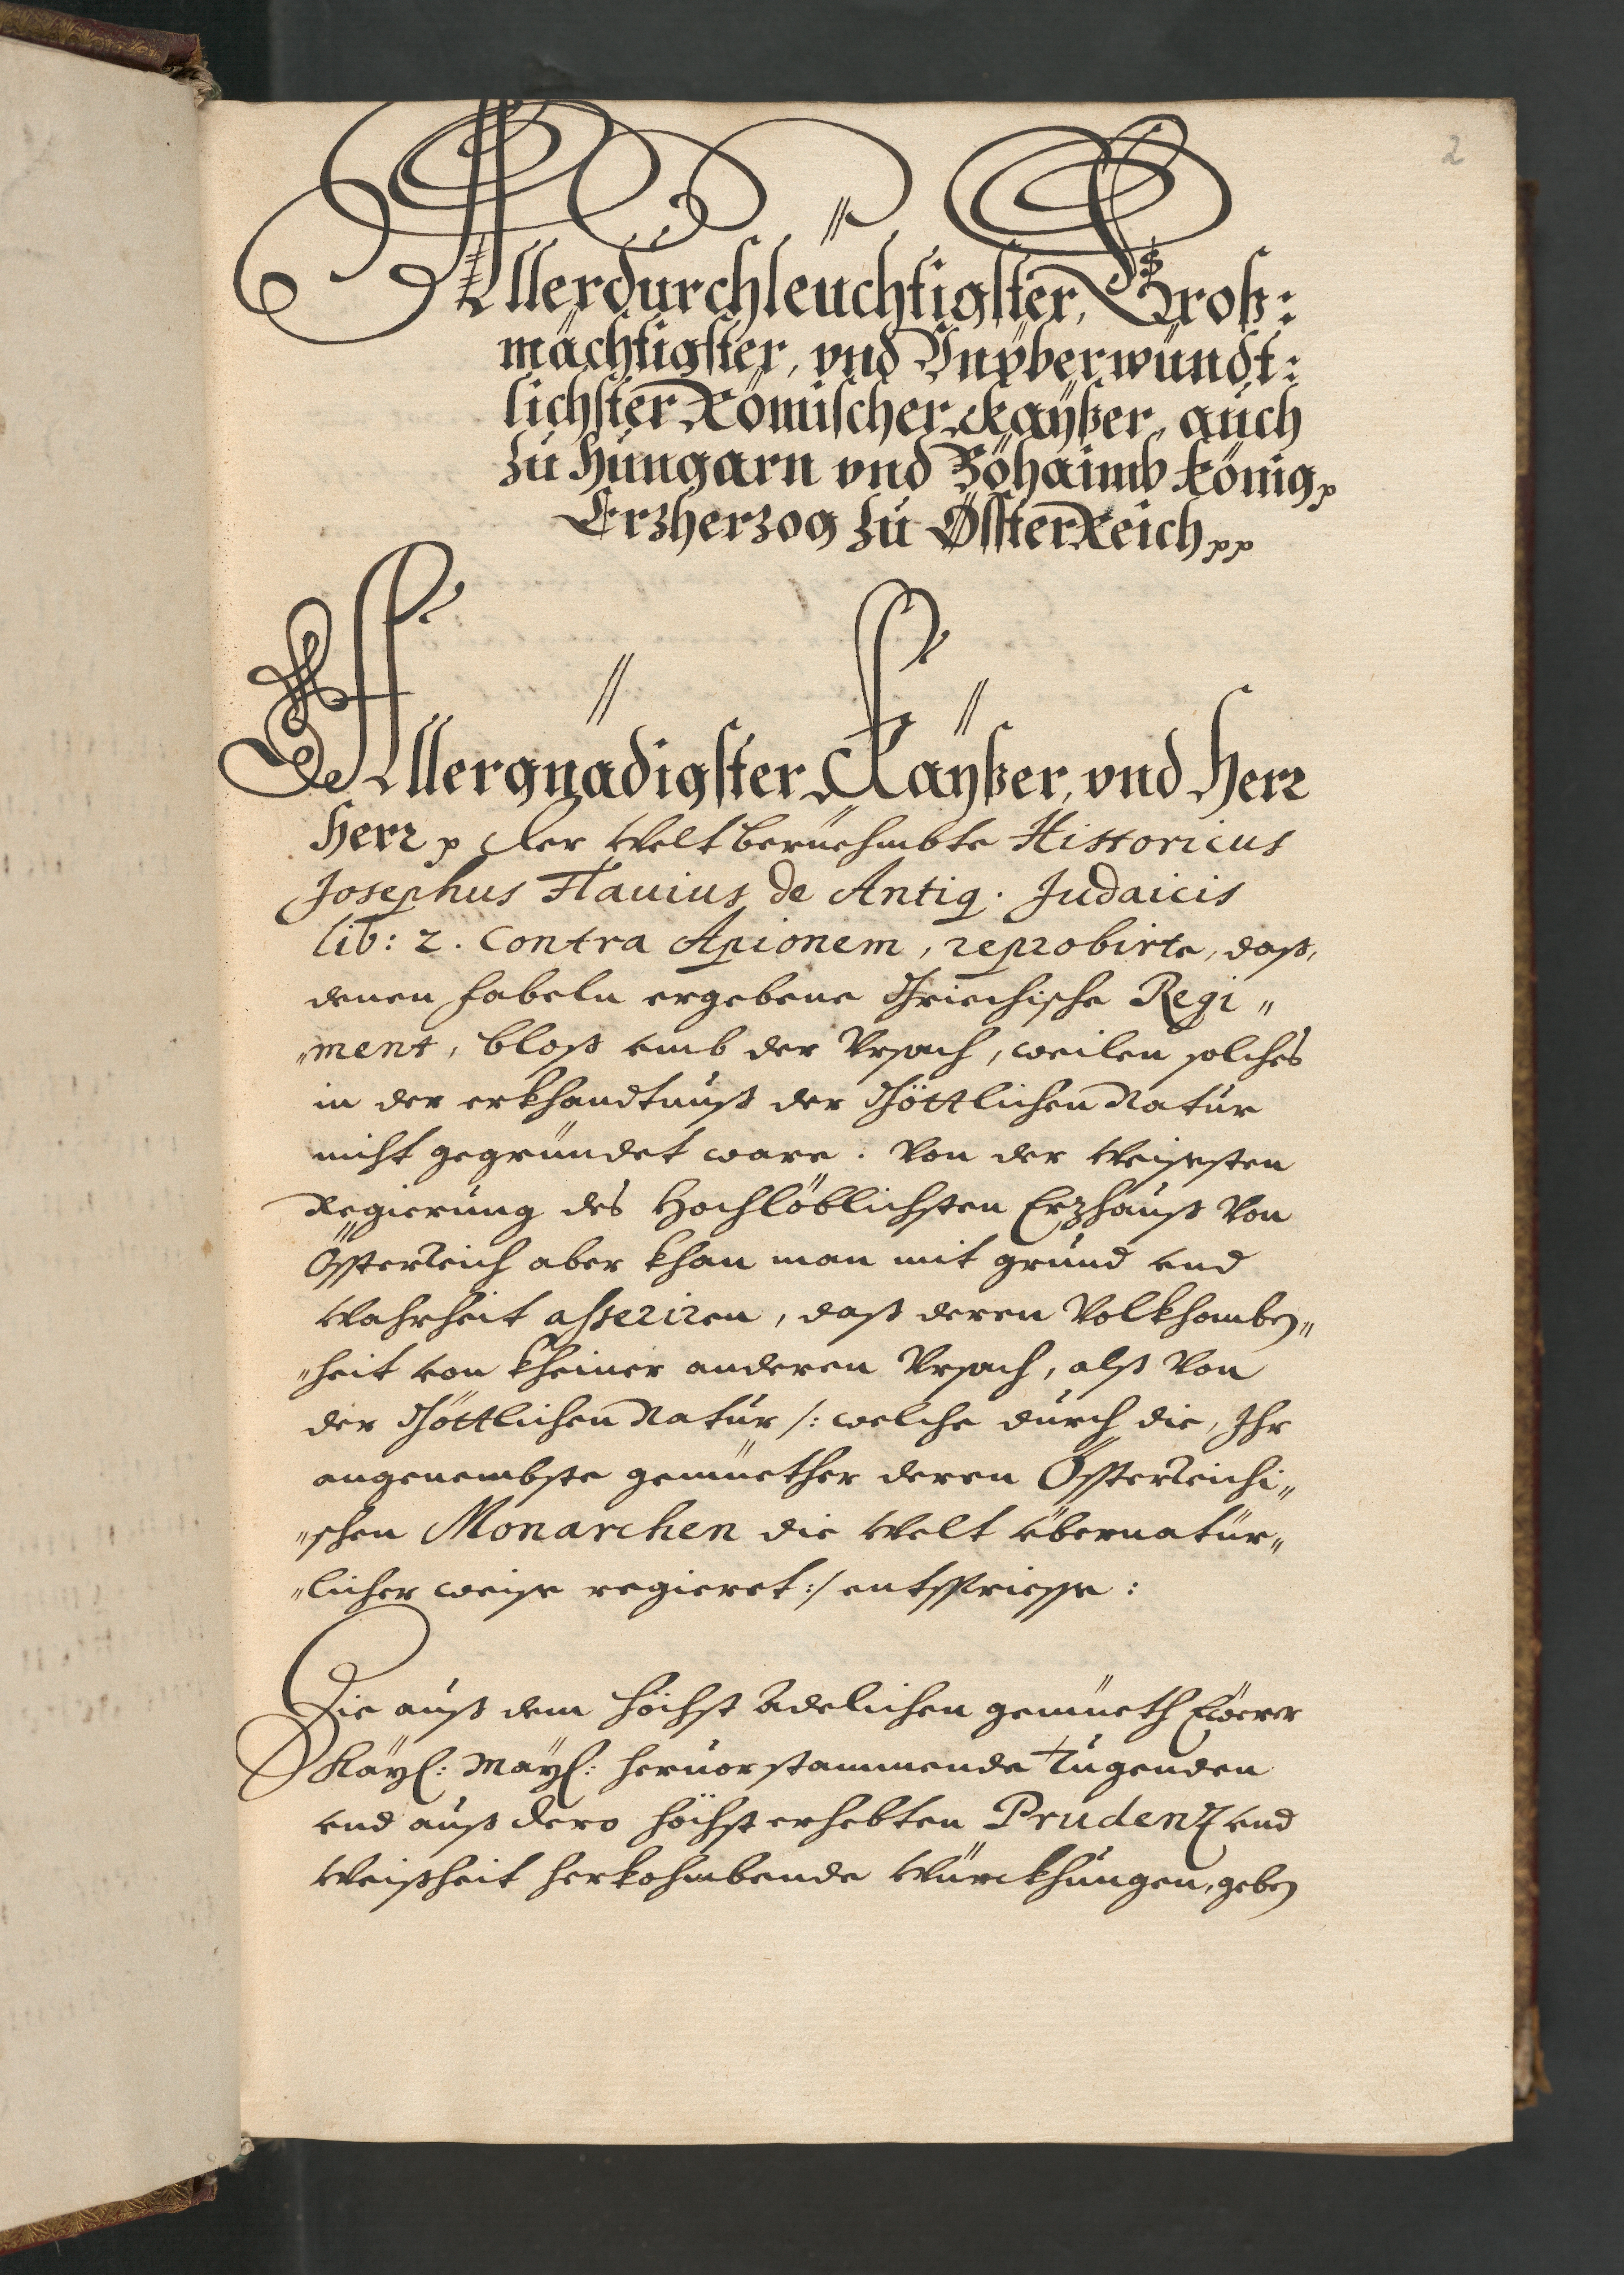 2
Allerdurchleuchtigster, Groß:
mächtigster, vnd Vnyberwündt:
lichster Römischer Kayßer, auch
zu Hungarn vnd Böhaimb König p
Erzherzog zu ÖsterReich pp
Allergnädigster Kayßer, vnd Herr
Herr p Der Weltberuehmbte Historicus
Josephus Flauius de Antiq. Judaicis
lib: 2. Contra Apionem, reprobirte, daß,
denen fabeln ergebene Griechische Regi„
„ment, bloß umb der Vrsach, weilen solches
in der erkhandtnuß der Göttlichen Natur
nicht gegründet ware. Von der Weisesten
Regierung des Hochlöblichsten Erzhauß Von
Österreich aber khan man mit grund und
Wahrheit asseriren, daß deren Vollkhomben„
„heit von kheiner anderen Vrsach, alß Von
der Göttlichen Natur /: welche durch die, Ihr
angenembste gemüether deren Österreichi„
„schen Monarchen die Welt übernatür„
„licher weise regieret :/ entspriesse:
Die auß dem höchst Adelichen gemüeth Eẅerer
Kaÿl: Maÿl: heruorstammende Tugenden
und auß dero höchst erhebten Prudenz und
Weißheit herkohmbende Würckhungen, geben